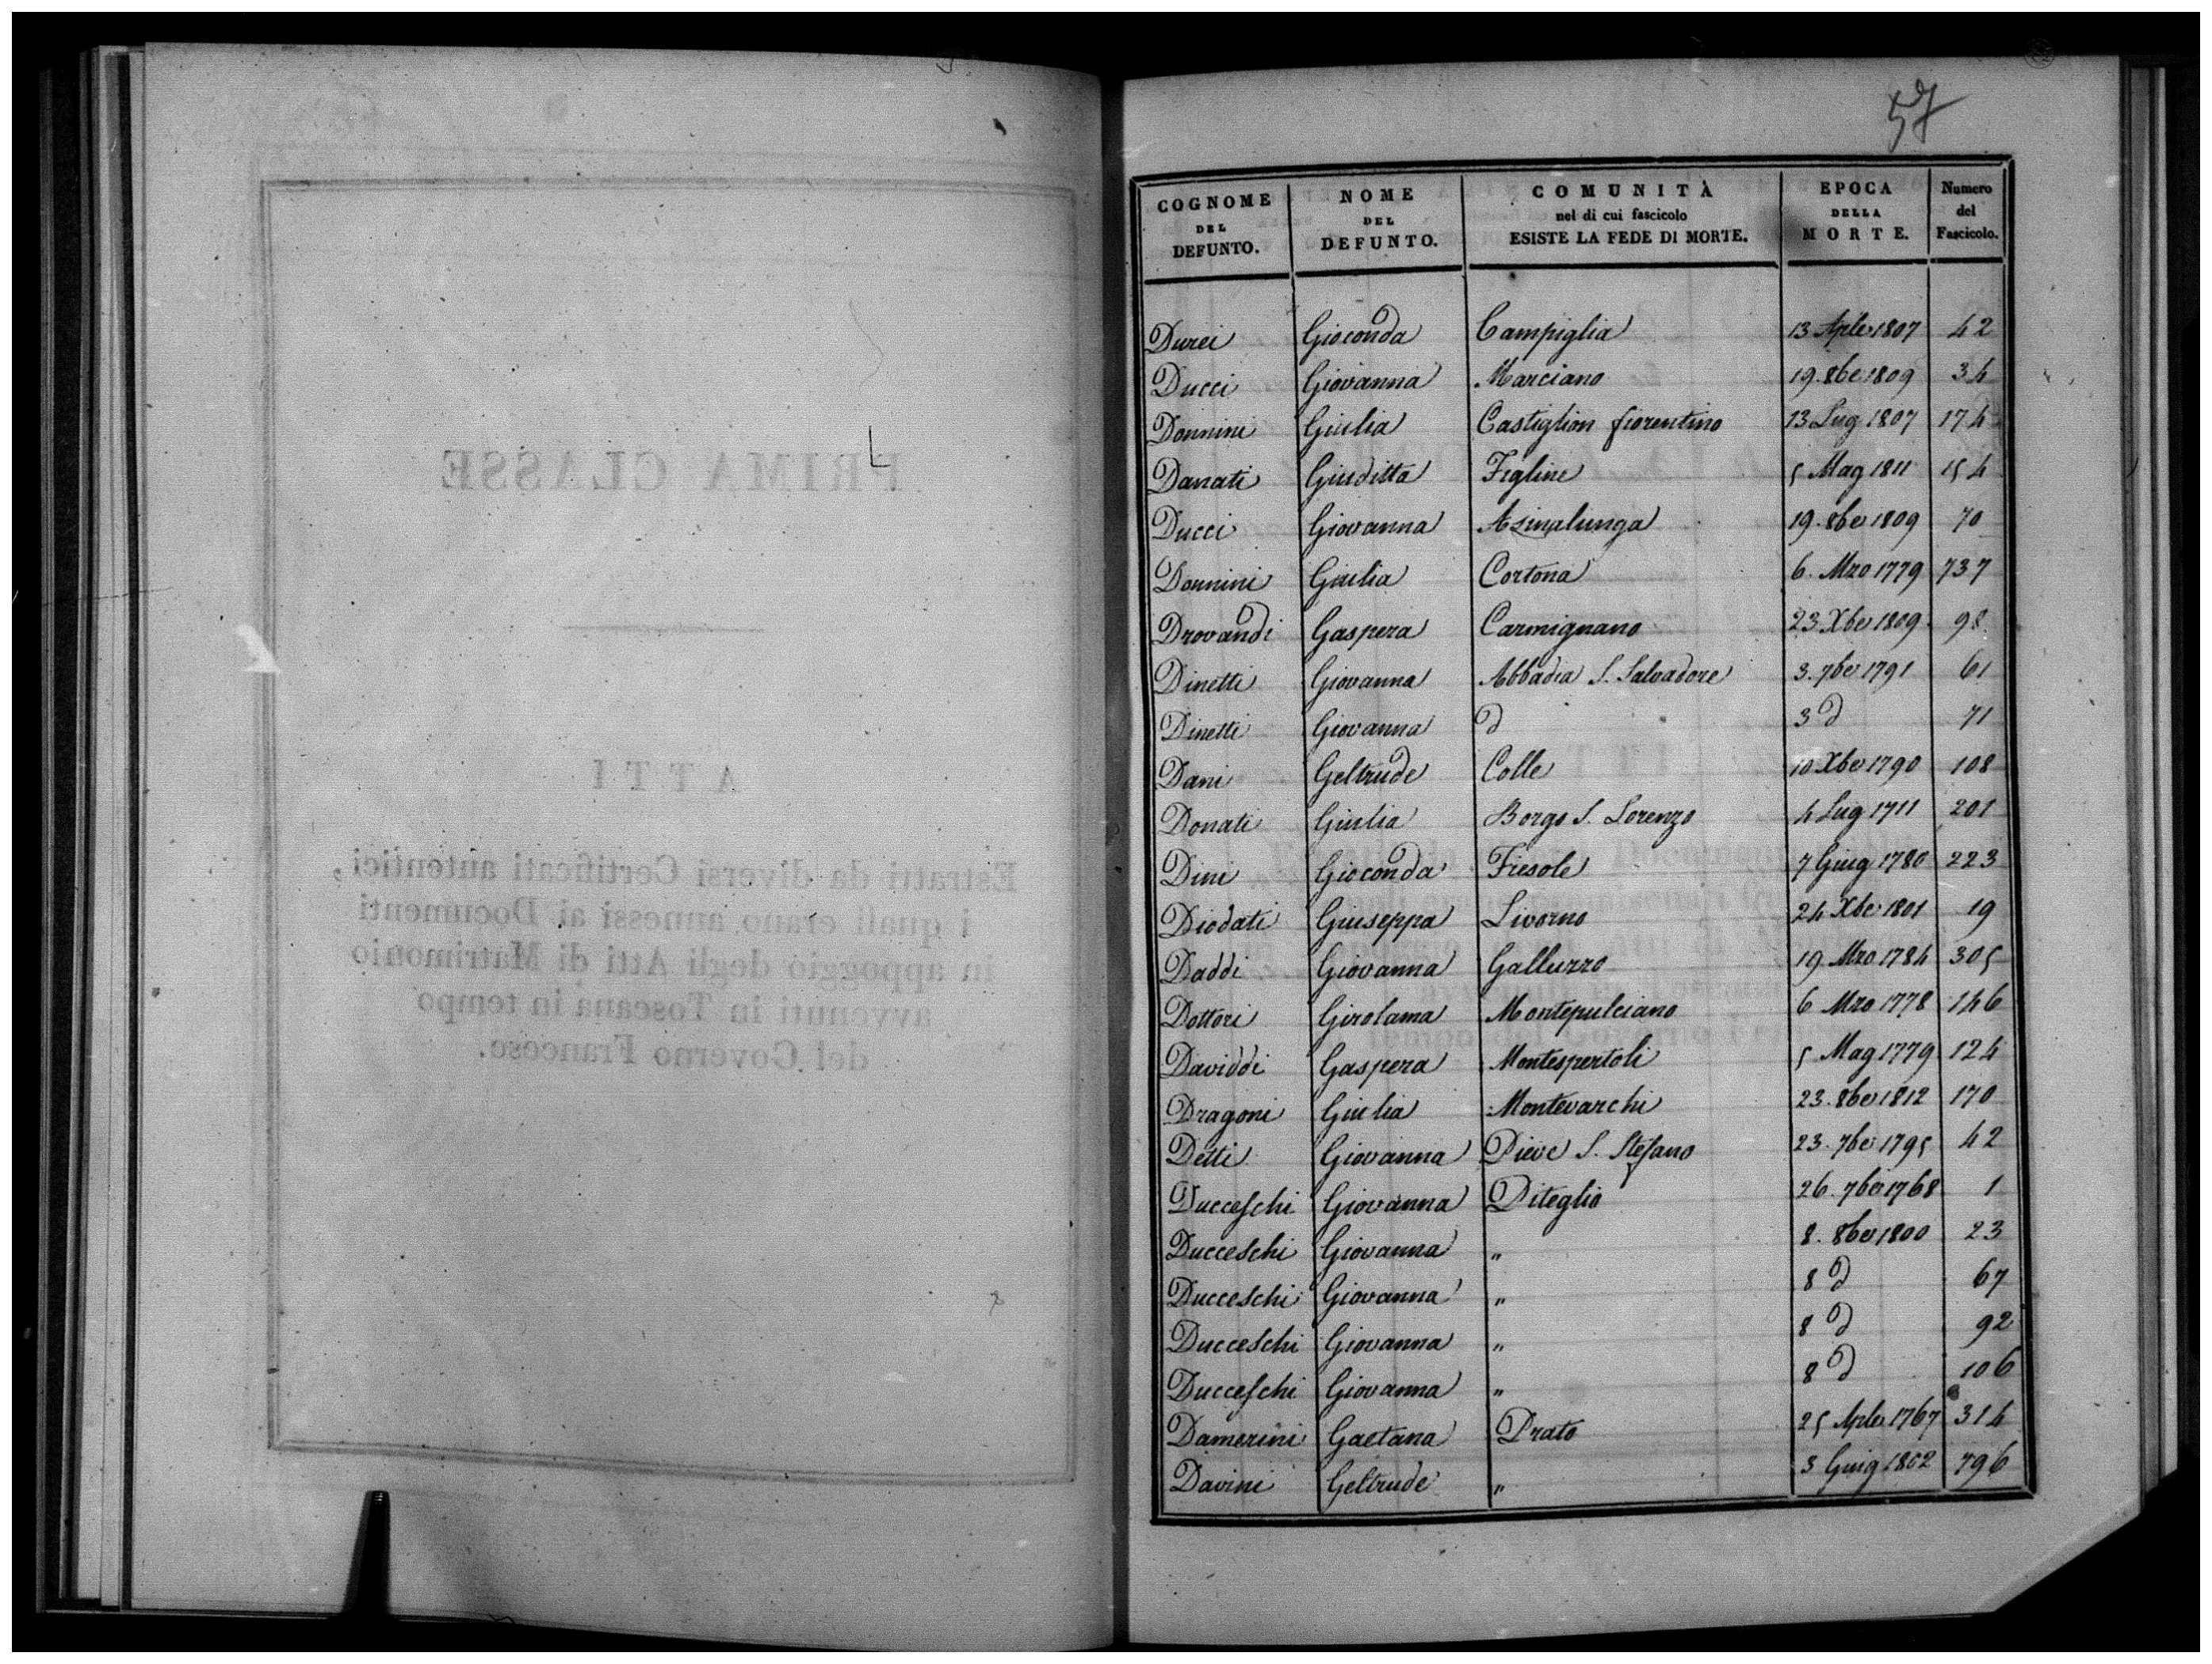 PRIMA CLASSE
ATTI
Estratti da diversi Certificati autentici,
i quali erano annessi ai Documenti
in appoggio degli Atti di Matrimonio
avvenuti in Toscana in tempo
del Governo Francese.
57
COGNOME DEL DEFUNTO. NOME DEL DEFUNTO. COMUNITÀ nel di cui fascicolo ESISTE LA FEDE DI MORTE. EPOCA DELLA MORTE. Numero del Fascicolo.
Durci Gioconda Campiglia 13 Aple 1807 42
Ducci Giovanna Marciano 19. 8be 1809 34
Donnini Giulia Castiglion fiorentino 13 Lug 1807 174
Danati Giuditta Figline 5 Mag 1811 154
Ducci Giovanna Asinalunga 19. 8be 1809 70
Donnini Giulia Cortona 6. Mzo 1779 737
Drovandi Gaspera Carmignano 23 Xbe 1809 98
Dinetti Giovanna Abbadia S. Salvadore 3. 7be 1791 61
Dinetti Giovanna d 3 d 71
Dani Geltrude Colle 10 Xbe 1790 108
Donati Giulia Borgo S. Lorenzo 4 Lug 1711 201
Dini Gioconda Fiesole 7 Giug 1780 223
Diodati Giuseppa Livorno 24 Xbe 1801 19
Daddi Giovanna Galluzzo 19. Mzo 1784 305
Dottori Girolama Montepulciano 6 Mzo 1778 146
Daviddi Gaspera Montespertoli 5 Mag 1779 124
Dragoni Giulia Montevarchi 23. 8be 1812 170
Detti Giovanna Pieve S. Stefano 23. 7be 1795 42
Ducceschi Giovanna Piteglio 26. 7be 1768 1
Ducceschi Giovanna " 8. 8be 1800 23
Ducceschi Giovanna " 8 d 67
Ducceschi Giovanna " 8 d 92
Ducceschi Giovanna " 8 d 106
Damerini Gaetana Prato 25 Aple 1767 314
Davini Geltrude " 3 Giug 1802 796